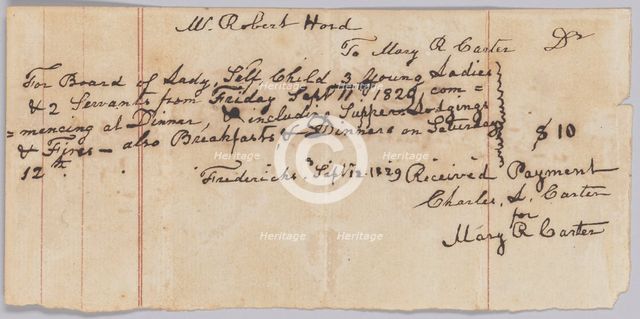 Mr. Robert Hord
To Mary R Carter Dr
For Board of Lady, Self, Child 3 Young Ladies
& 2 Servants from Friday Sept 11th 1829, com=
=mencing at Dinner, & including Suppers Lodgings
& Fires – also Breakfasts & Dinners on Saturday
12th. $10
Fredericksg Sept 12. 1829 Received Payment
Charles, L. Carter
for
Mary R Carter
Heritage
Heritage
Heritage
Heritage
Heritage